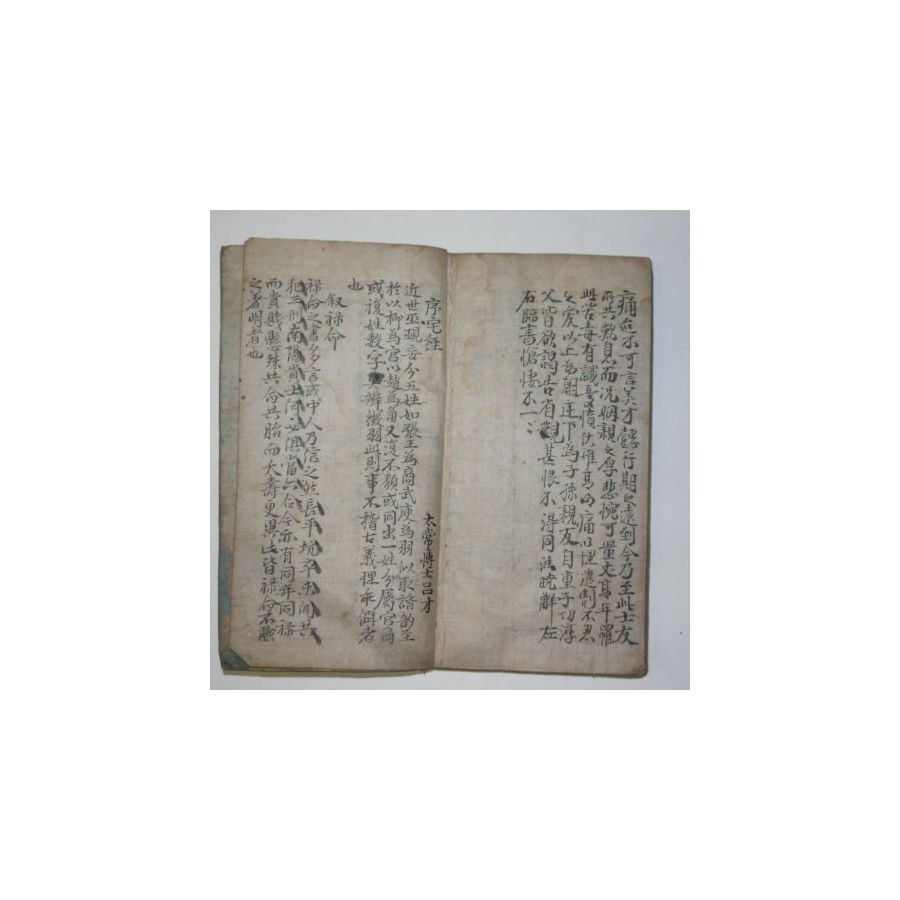 痛㦲不可言美才懿行期之遠到今乃至此士友
所共歎息而况姻親之厚悲惋可量丈高年罹
此苦毒有識憂憤伏惟高明痛以理遣割不忍
之愛以上為朝廷下為子孫親友自重子功淳
父皆欲謁告省覲甚恨不得同往曉解左
右臨書愴悽不一〻
序宅經
太常博士呂才
近世巫覡妄分五姓如張王為商武庾為羽似取諧韵至
於以柳為宮以趙為角又復不類或同出一姓分屬宮商
或複姓數字莫辨徵羽此則事不稽古義理乖僻者
也
叙祿命
祿命之書多言或中人乃信之然長平坑卒未聞共
犯三刑南陽貴士何必俱當六合今亦有同年同祿
而貴賤懸殊共命共胎而夭壽更異此皆祿命不驗
之著明者也